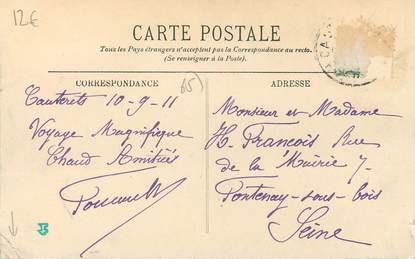 12€
CARTE POSTALE
Tous les Pays étrangers n'acceptent pas la Correspondance au recto.
(Se renseigner à la Poste).
CORRESPONDANCE
(65)
Cauterets 10-9-11
Voyage Magnifique
Chaud Amitiés
ADRESSE
Monsieur et Madame
H. Francois Rue
de la Mairie 7-
Fontenay-sous-bois
Seine